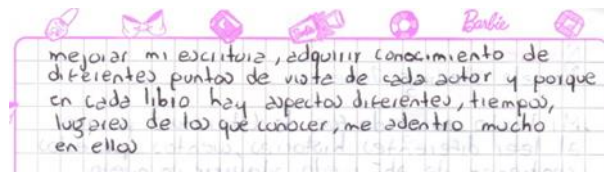 Barbie
mejorar mi escritura, adquirir conocimiento de
diferentes puntos de vista de cada autor y porque
en cada libro hay aspectos diferentes, tiempos,
lugares de los que conocer, me adentro mucho
en ellos